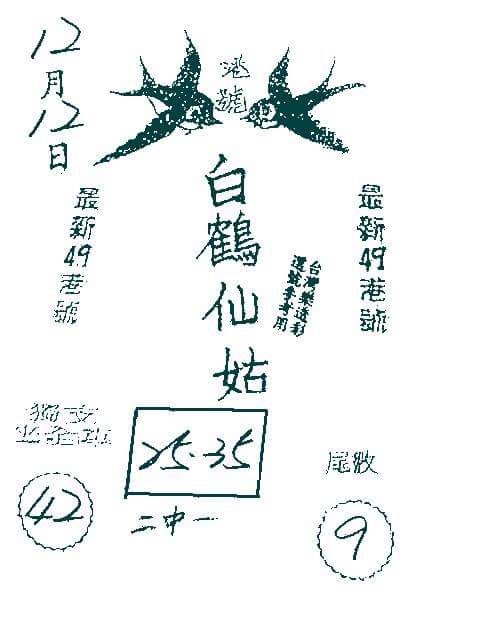 12
月
12
日
港號
白鶴仙姑
最新49港號
最新49港號
台灣樂透彩
選號參考用
獨支
25.35
二中一
42
尾数
9